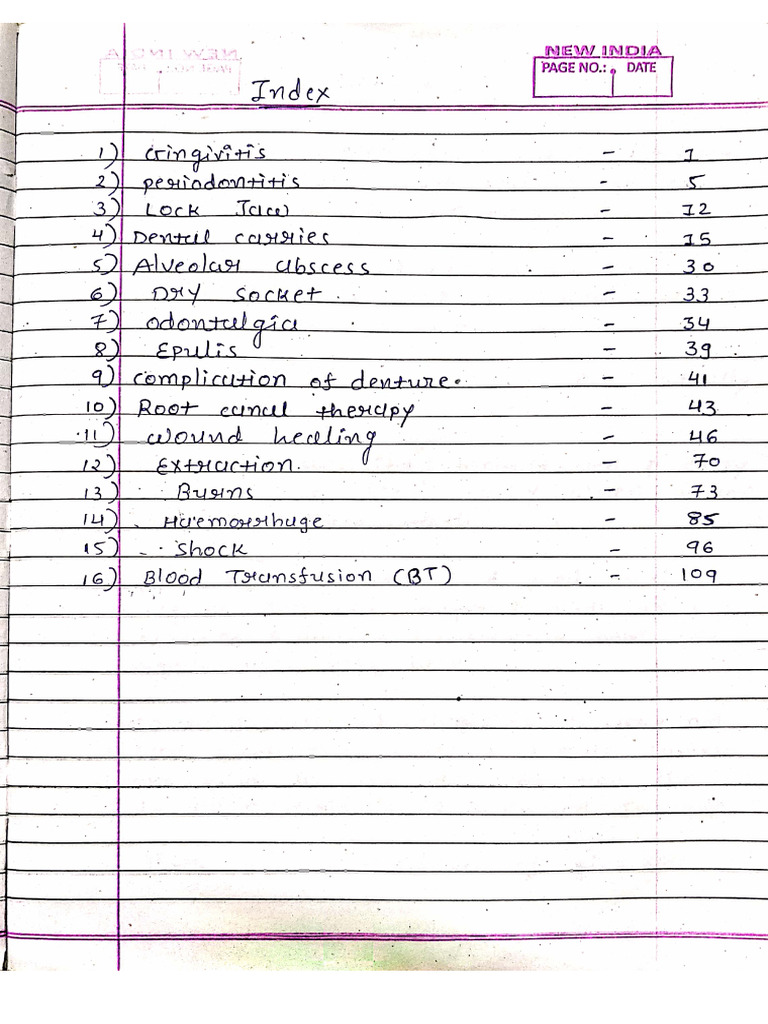 NEW INDIA
PAGE NO.: DATE
Index
1) Gingivitis - 1
2) periodontitis - 5
3) Lock Jaw - 12
4) Dental carries - 15
5) Alveolar abscess - 30
6) Dry socket - 33
7) odontalgia - 34
8) Epulis - 39
9) complication of denture. - 41
10) Root canal therapy - 43
11) wound healing - 46
12) Extraction. - 70
13) Burns - 73
14) Haemorrhage - 85
15) Shock - 96
16) Blood Transfusion (BT) - 109